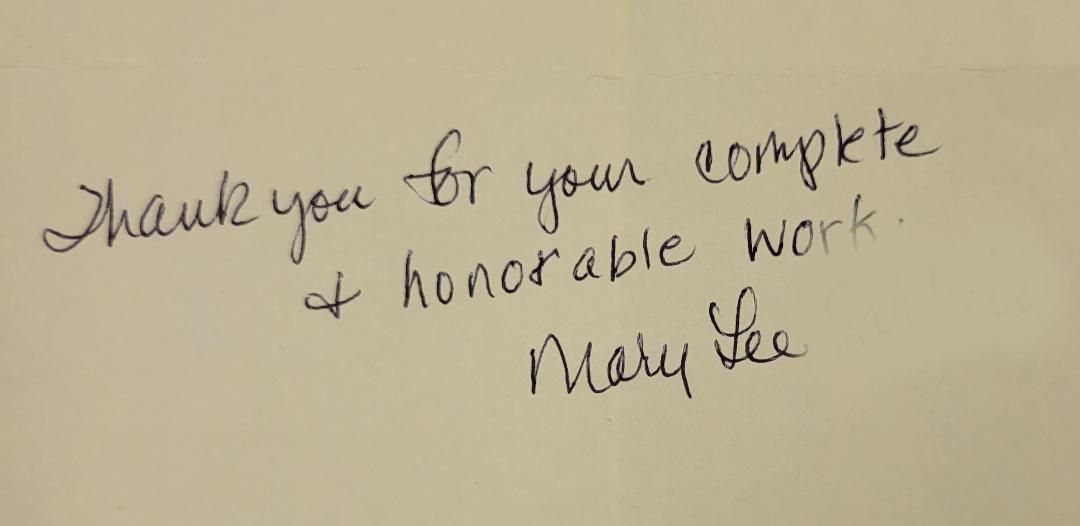 Thank you for your complete
& honorable work.
Mary Lee